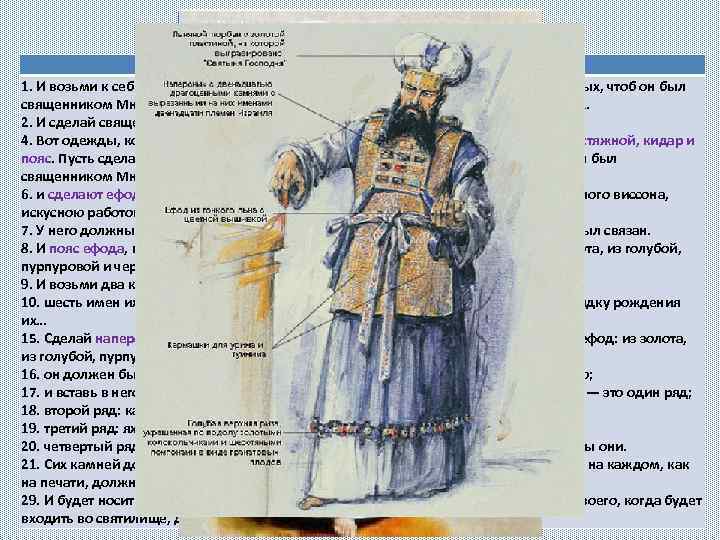 Льняной тюрбан с золотой
пластиной, на которой
выгравировано
"Святыня Господня"
Наперсник с двенадцатью
драгоценными камнями с
вырезанными на них именами
двенадцати племен Израиля
Ефод из тонкого льна с
цветной вышивкой
Кармашки для урима и
туммима
Голубая верхняя риза,
украшенная по подолу золотыми
колокольчиками и шерстяными
помпонами в виде гранатовых
плодов
1. И возьми к себ ых, чтоб он был
священником Мн
2. И сделай свяще
4. Вот одежды, ко стяжной, кидар и
пояс. Пусть сдела был
священником Мн
6. и сделают ефод ного виссона,
искусною работо
7. У него должны ыл связан.
8. И пояс ефода, та, из голубой,
пурпуровой и чер
9. И возьми два к
10. шесть имен их дку рождения
их…
15. Сделай наперс ефод: из золота,
из голубой, пурпу
16. он должен бы
17. и вставь в него — это один ряд;
18. второй ряд: ка
19. третий ряд: ях
20. четвертый ряд ы они.
21. Сих камней до на каждом, как
на печати, должн
29. И будет носит воего, когда будет
входить во святилище, д